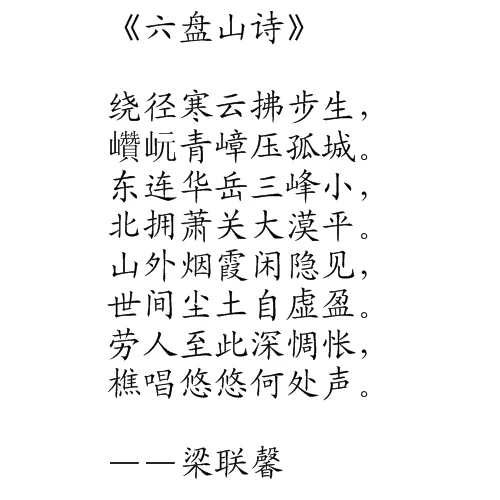 《六盘山诗》
绕径寒云拂步生，
巑岏青嶂压孤城。
东连华岳三峰小，
北拥萧关大漠平。
山外烟霞闲隐见，
世间尘土自虚盈。
劳人至此深惆怅，
樵唱悠悠何处声。
——梁联馨